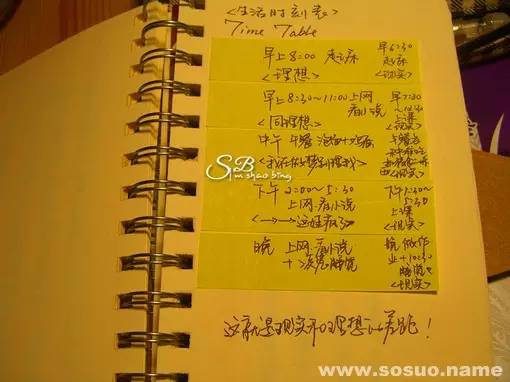 <生活时刻表>
Time Table
早上8:00 起床
<理想>
早6:30
起床
<现实>
早上8:30~11:00上网
看小说
<同理想>
早7:30
上课
<现实>
中午 午餐 泡面+鸡蛋
<我在做梦别理我>
午餐
下午 2:00~5:30
上网.看小说
<→→这娃疯了>
下午
5:30
上课
<现实>
晚 上网.看小说
晚 做作
业+10:30
睡觉
<现实>
这就是现实和理想的差距!
SB
Sun shao bing
www.sosuo.name